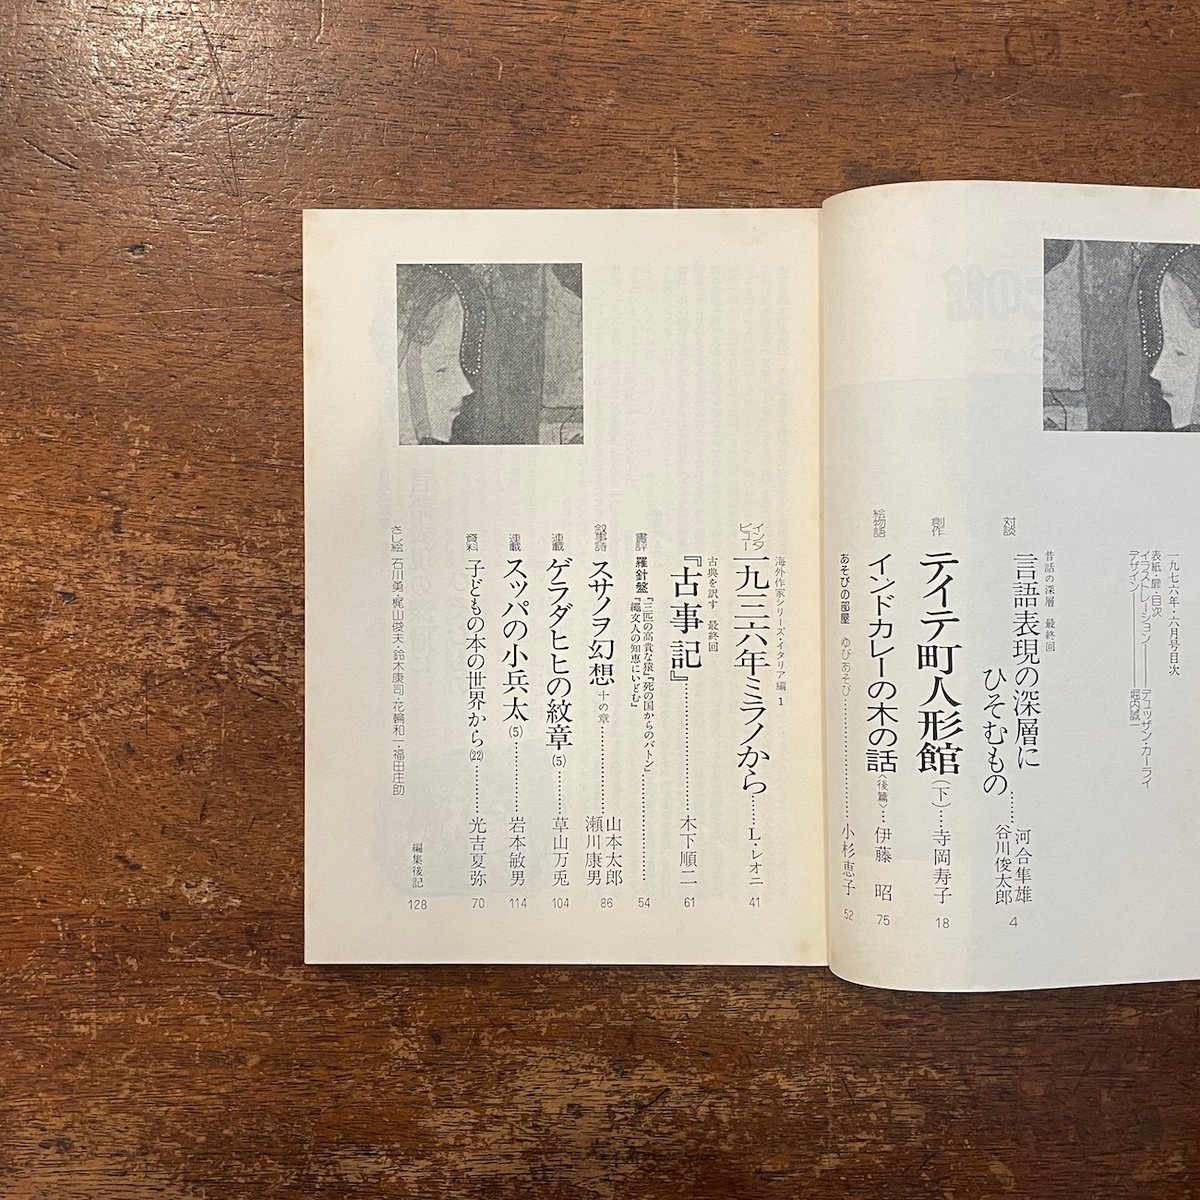 一九七六年・六月号目次
表紙・扉・目次
イラストレーション━━デュッザン・カーライ
デザイン━━堀内誠一
対談
昔話の深層 最終回
言語表現の深層に
ひそむもの……河合隼雄
谷川俊太郎 4
創作
テイテ町人形館(下)…寺岡寿子 18
絵物語
インドカレーの木の話〈後篇〉…伊藤 昭 75
あそびの部屋 ゆびあそび……小杉恵子 52
海外作家シリーズ・イタリア編 1
インタビュー
一九三六年ミラノから……L・レオニ 41
古典を訳す 最終回
『古事記』……木下順二 61
書評
羅針盤『三匹の高貴な猿』『死の国からのバトン』
『縄文人の知恵にいどむ』…… 54
叙事詩
スサノヲ幻想 十の章……山本太郎
瀬川康男 86
連載
ゲラダヒヒの紋章(5)……草山万兎 104
連載
スッパの小兵太(5)……岩本敏男 114
資料
子どもの本の世界から(22)……光吉夏弥 70
編集後記 128
さし絵 石川勇・梶山俊夫・鈴木康司・花輪和一・福田庄助